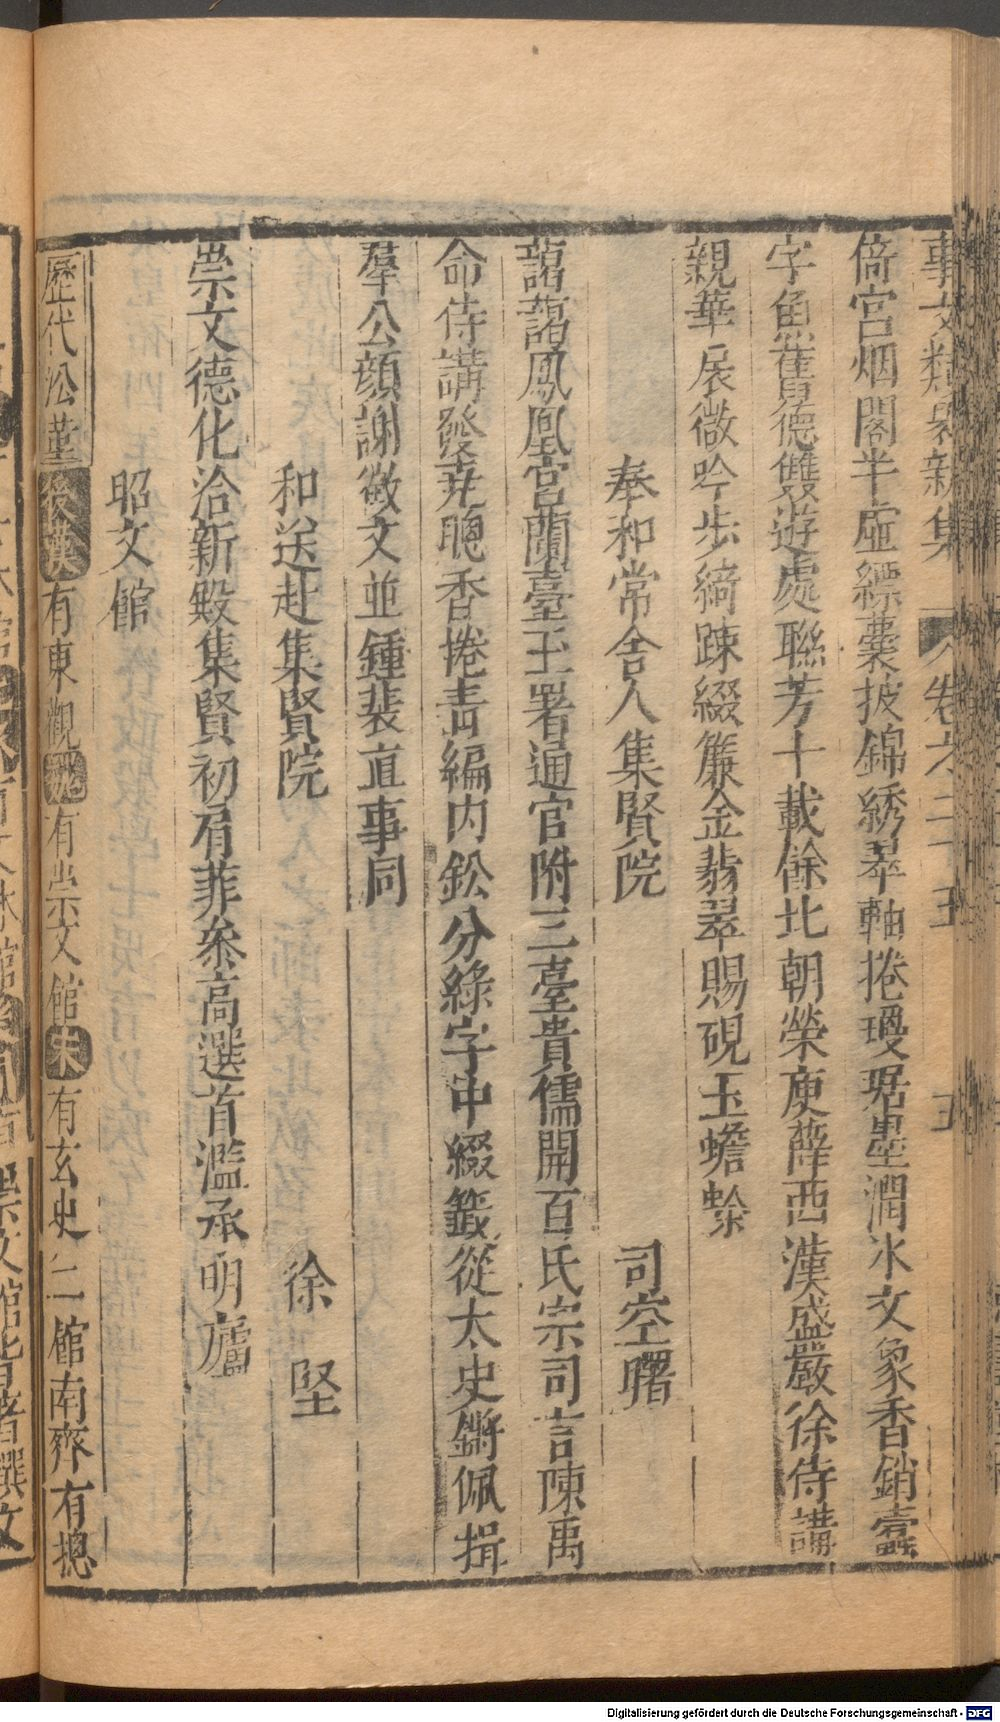 事文類聚新集 卷之二十五 五
倚宮烟閣半虛縹囊披錦綉翠軸捲瓊琚墨潤氷文象香銷蠹
字魚舊德雙遊處聯芳十載餘北朝榮庾薛西漢盛嚴徐侍講
親華扆微吟步綺疎綴簾金翡翠賜硯玉蟾蜍
奉和常舍人集賢院 司空曙
藹藹鳳凰宮蘭臺玉署通官附三臺貴儒開百氏宗司言陳禹
命侍講發堯聰香捲青編內鈆分綠字中綴籤從太史鏘佩揖
羣公顔謝徵文並鍾裴直事同
和送赴集賢院 徐 堅
崇文德化洽新殿集賢初肩菲叅高選首濫承明廬
昭文館
歷代㳂革 後漢 有東觀 魏 有崇文館 宋 有玄史二館南齊有摠
Digitalisierung gefördert durch die Deutsche Forschungsgemeinschaft - DFG